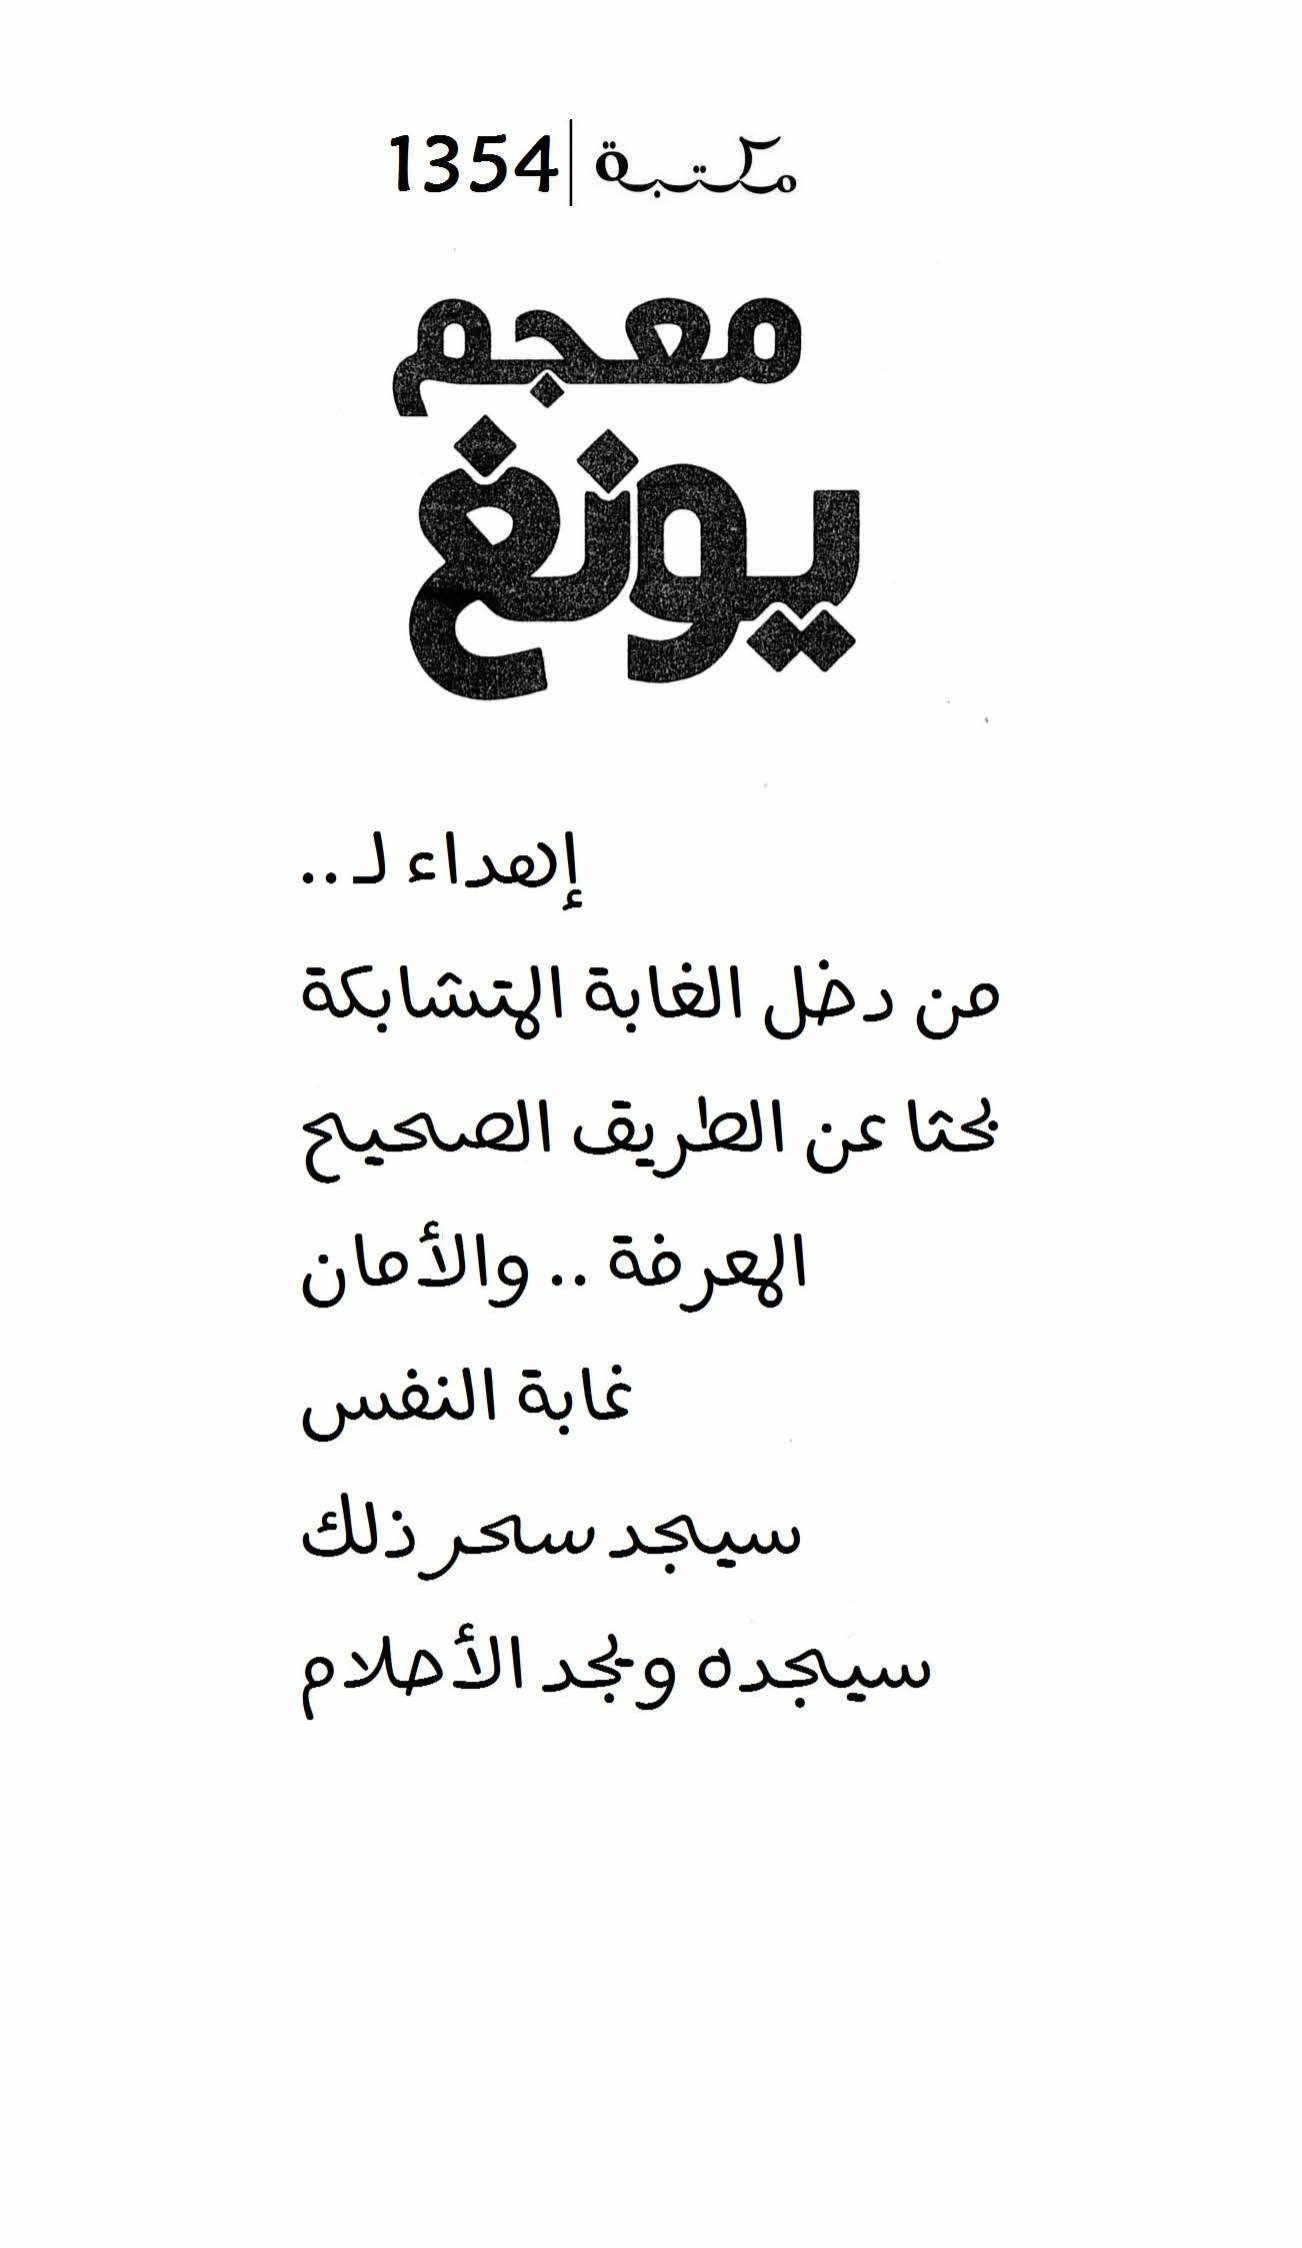 مكتبة | 1354
معجم
يونغ
إهداء لـ ..
من دخل الغابة المتشابكة
بحثا عن الطريق الصحيح
المعرفة .. والأمان
غابة النفس
سيجد سحر ذلك
سيجده ويجد الأحلام